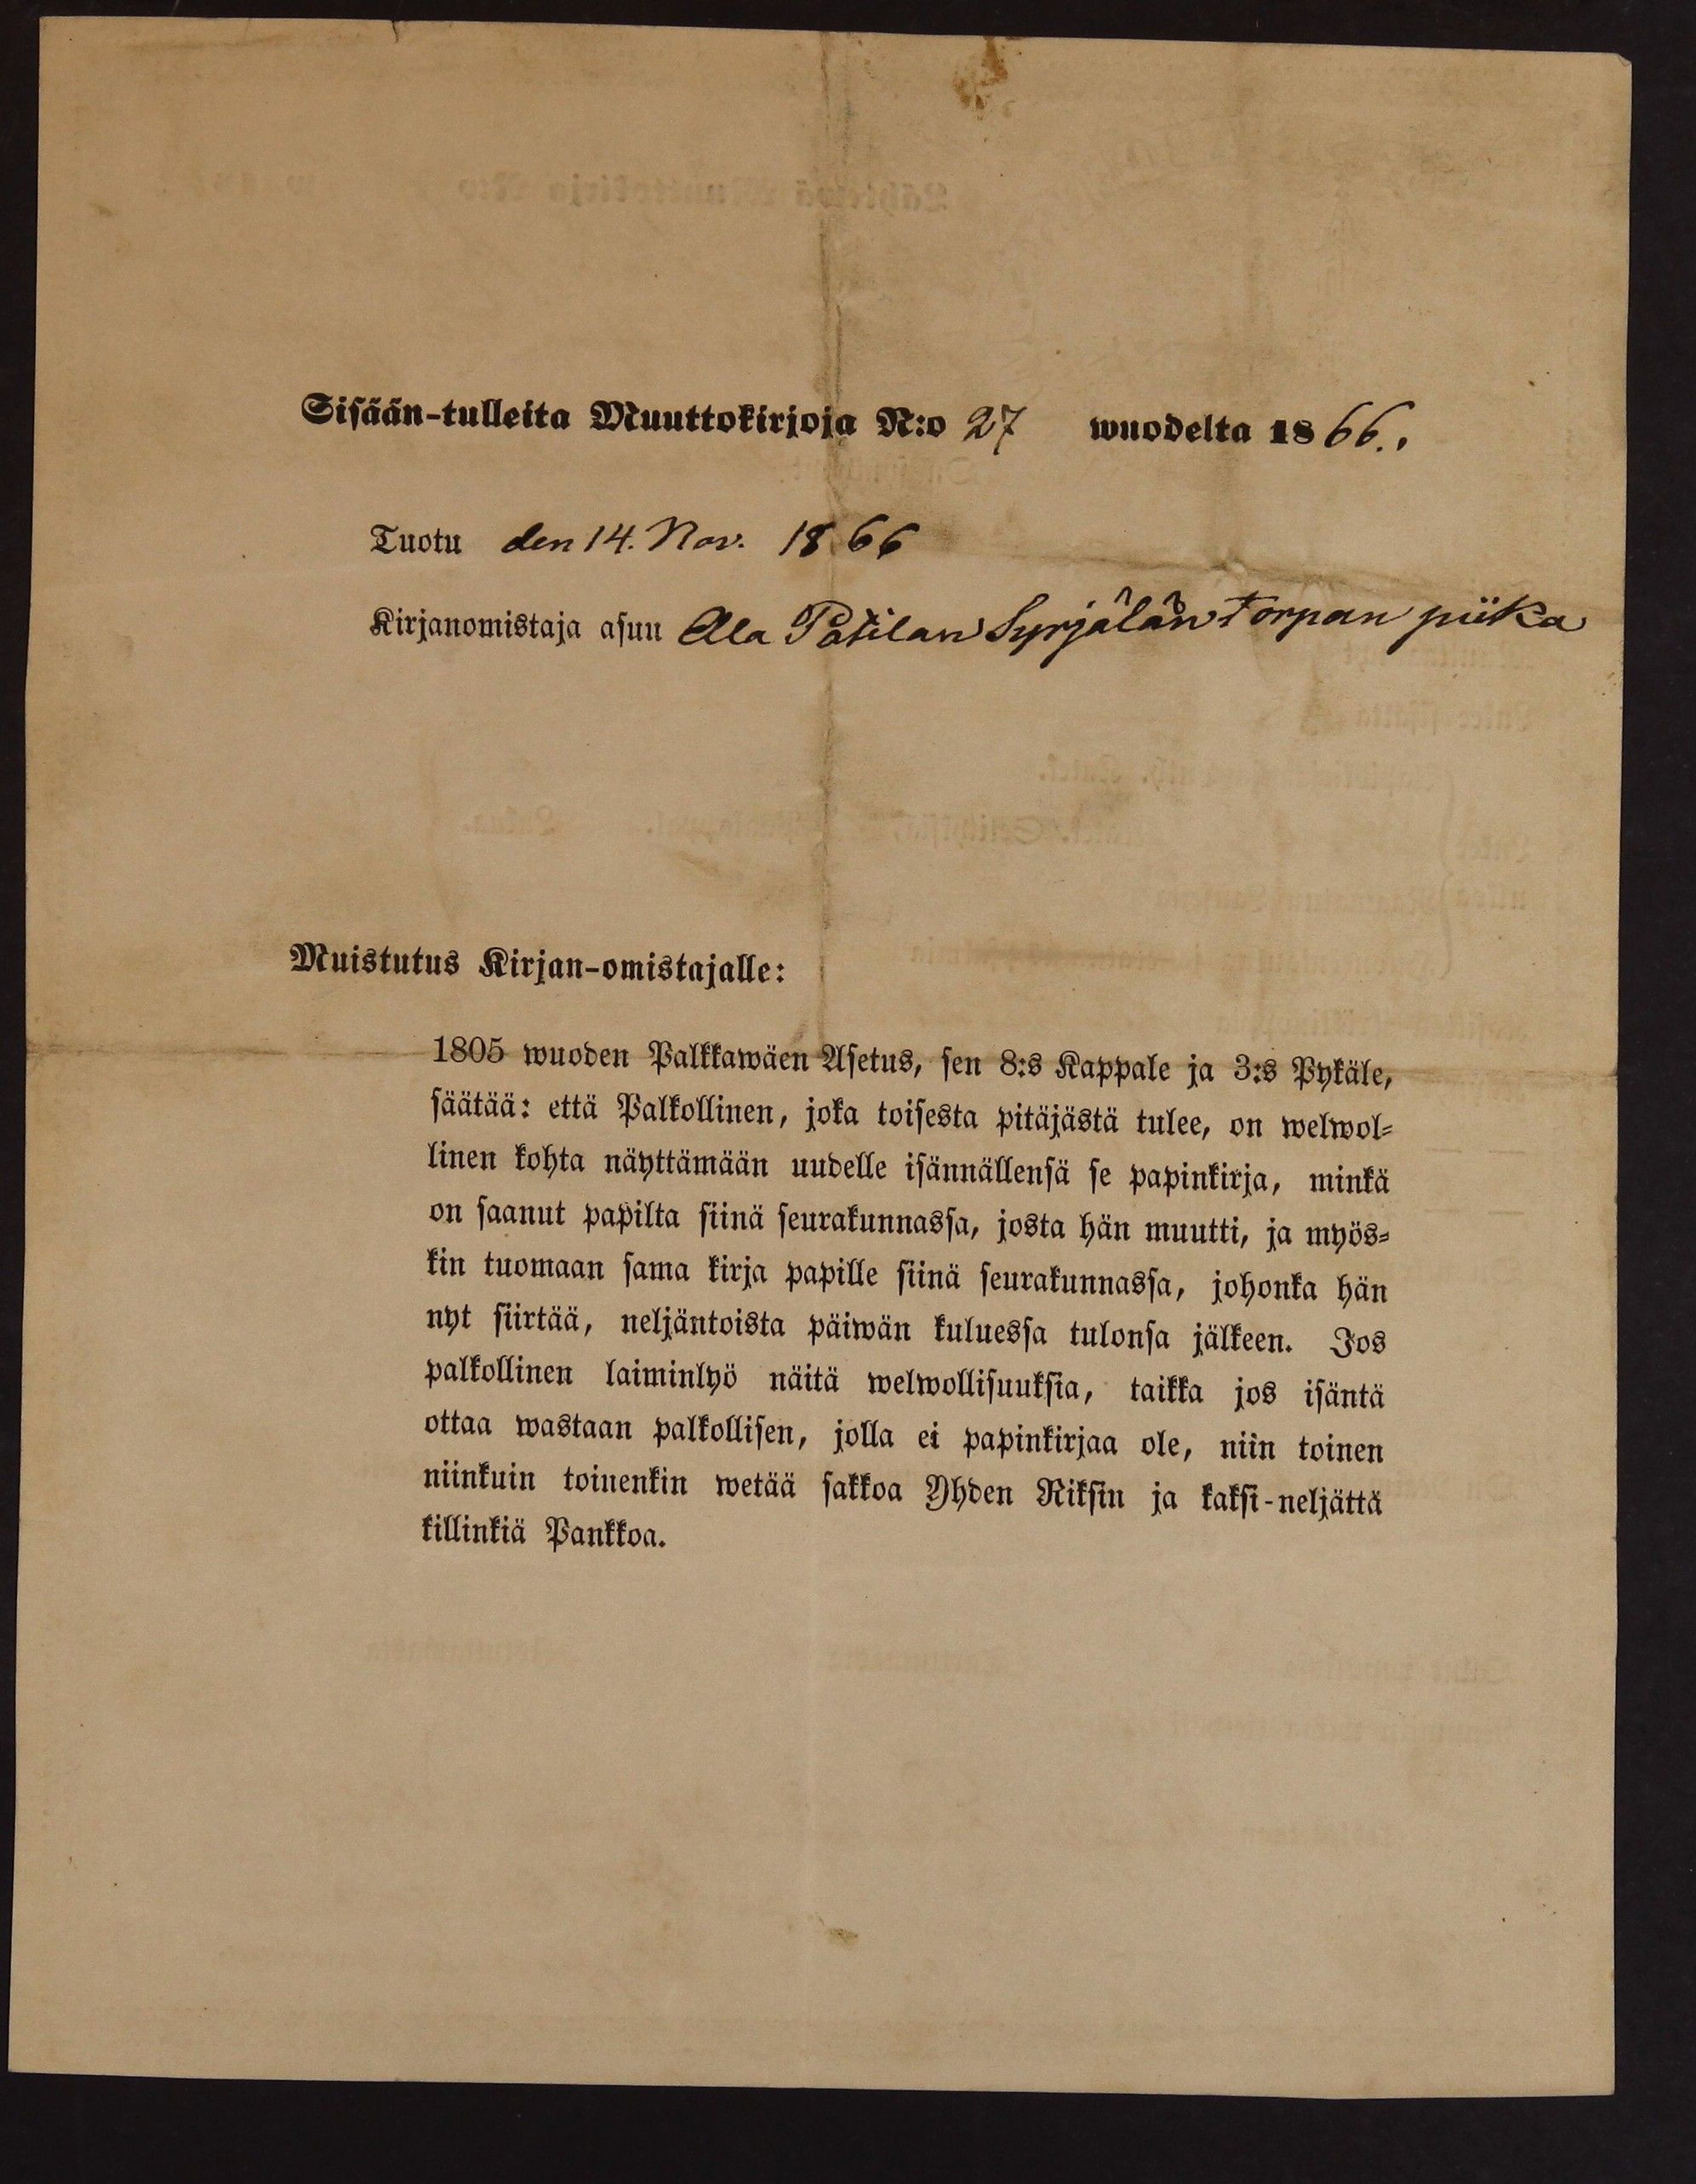 Sisään-tulleita Muuttokirjoja N:o 27 wuodelta 1866.
Tuotu den 14. Nov. 1866
Kirjanomistaja asuu Ala Syrjälän torpan piika
Muistutus Kirjan-omistajalle:
1805 wuoden Palkkawäen Asetus, sen 8:s Kappale ja 3:s Pykäle,
säätää: että Palkollinen, joka toisesta pitäjästä tulee, on welwol-
linen kohta näyttämään uudelle isännällensä se papinkirja, minkä
on saanut papilta siinä seurakunnassa, josta hän muutti, ja myös-
kin tuomaan sama kirja papille siinä seurakunnassa, johonka hän
nyt siirtää, neljäntoista päiwän kuluessa tulonsa jälkeen. Jos
palkollinen laiminlyö näitä welwollisuuksia, taikka jos isäntä
ottaa wastaan palkollisen, jolla ei papinkirjaa ole, niin toinen
niinkuin toinenkin wetää sakkoa Yhden Riksin ja kaksi-neljättä
killinkiä Pankkoa.